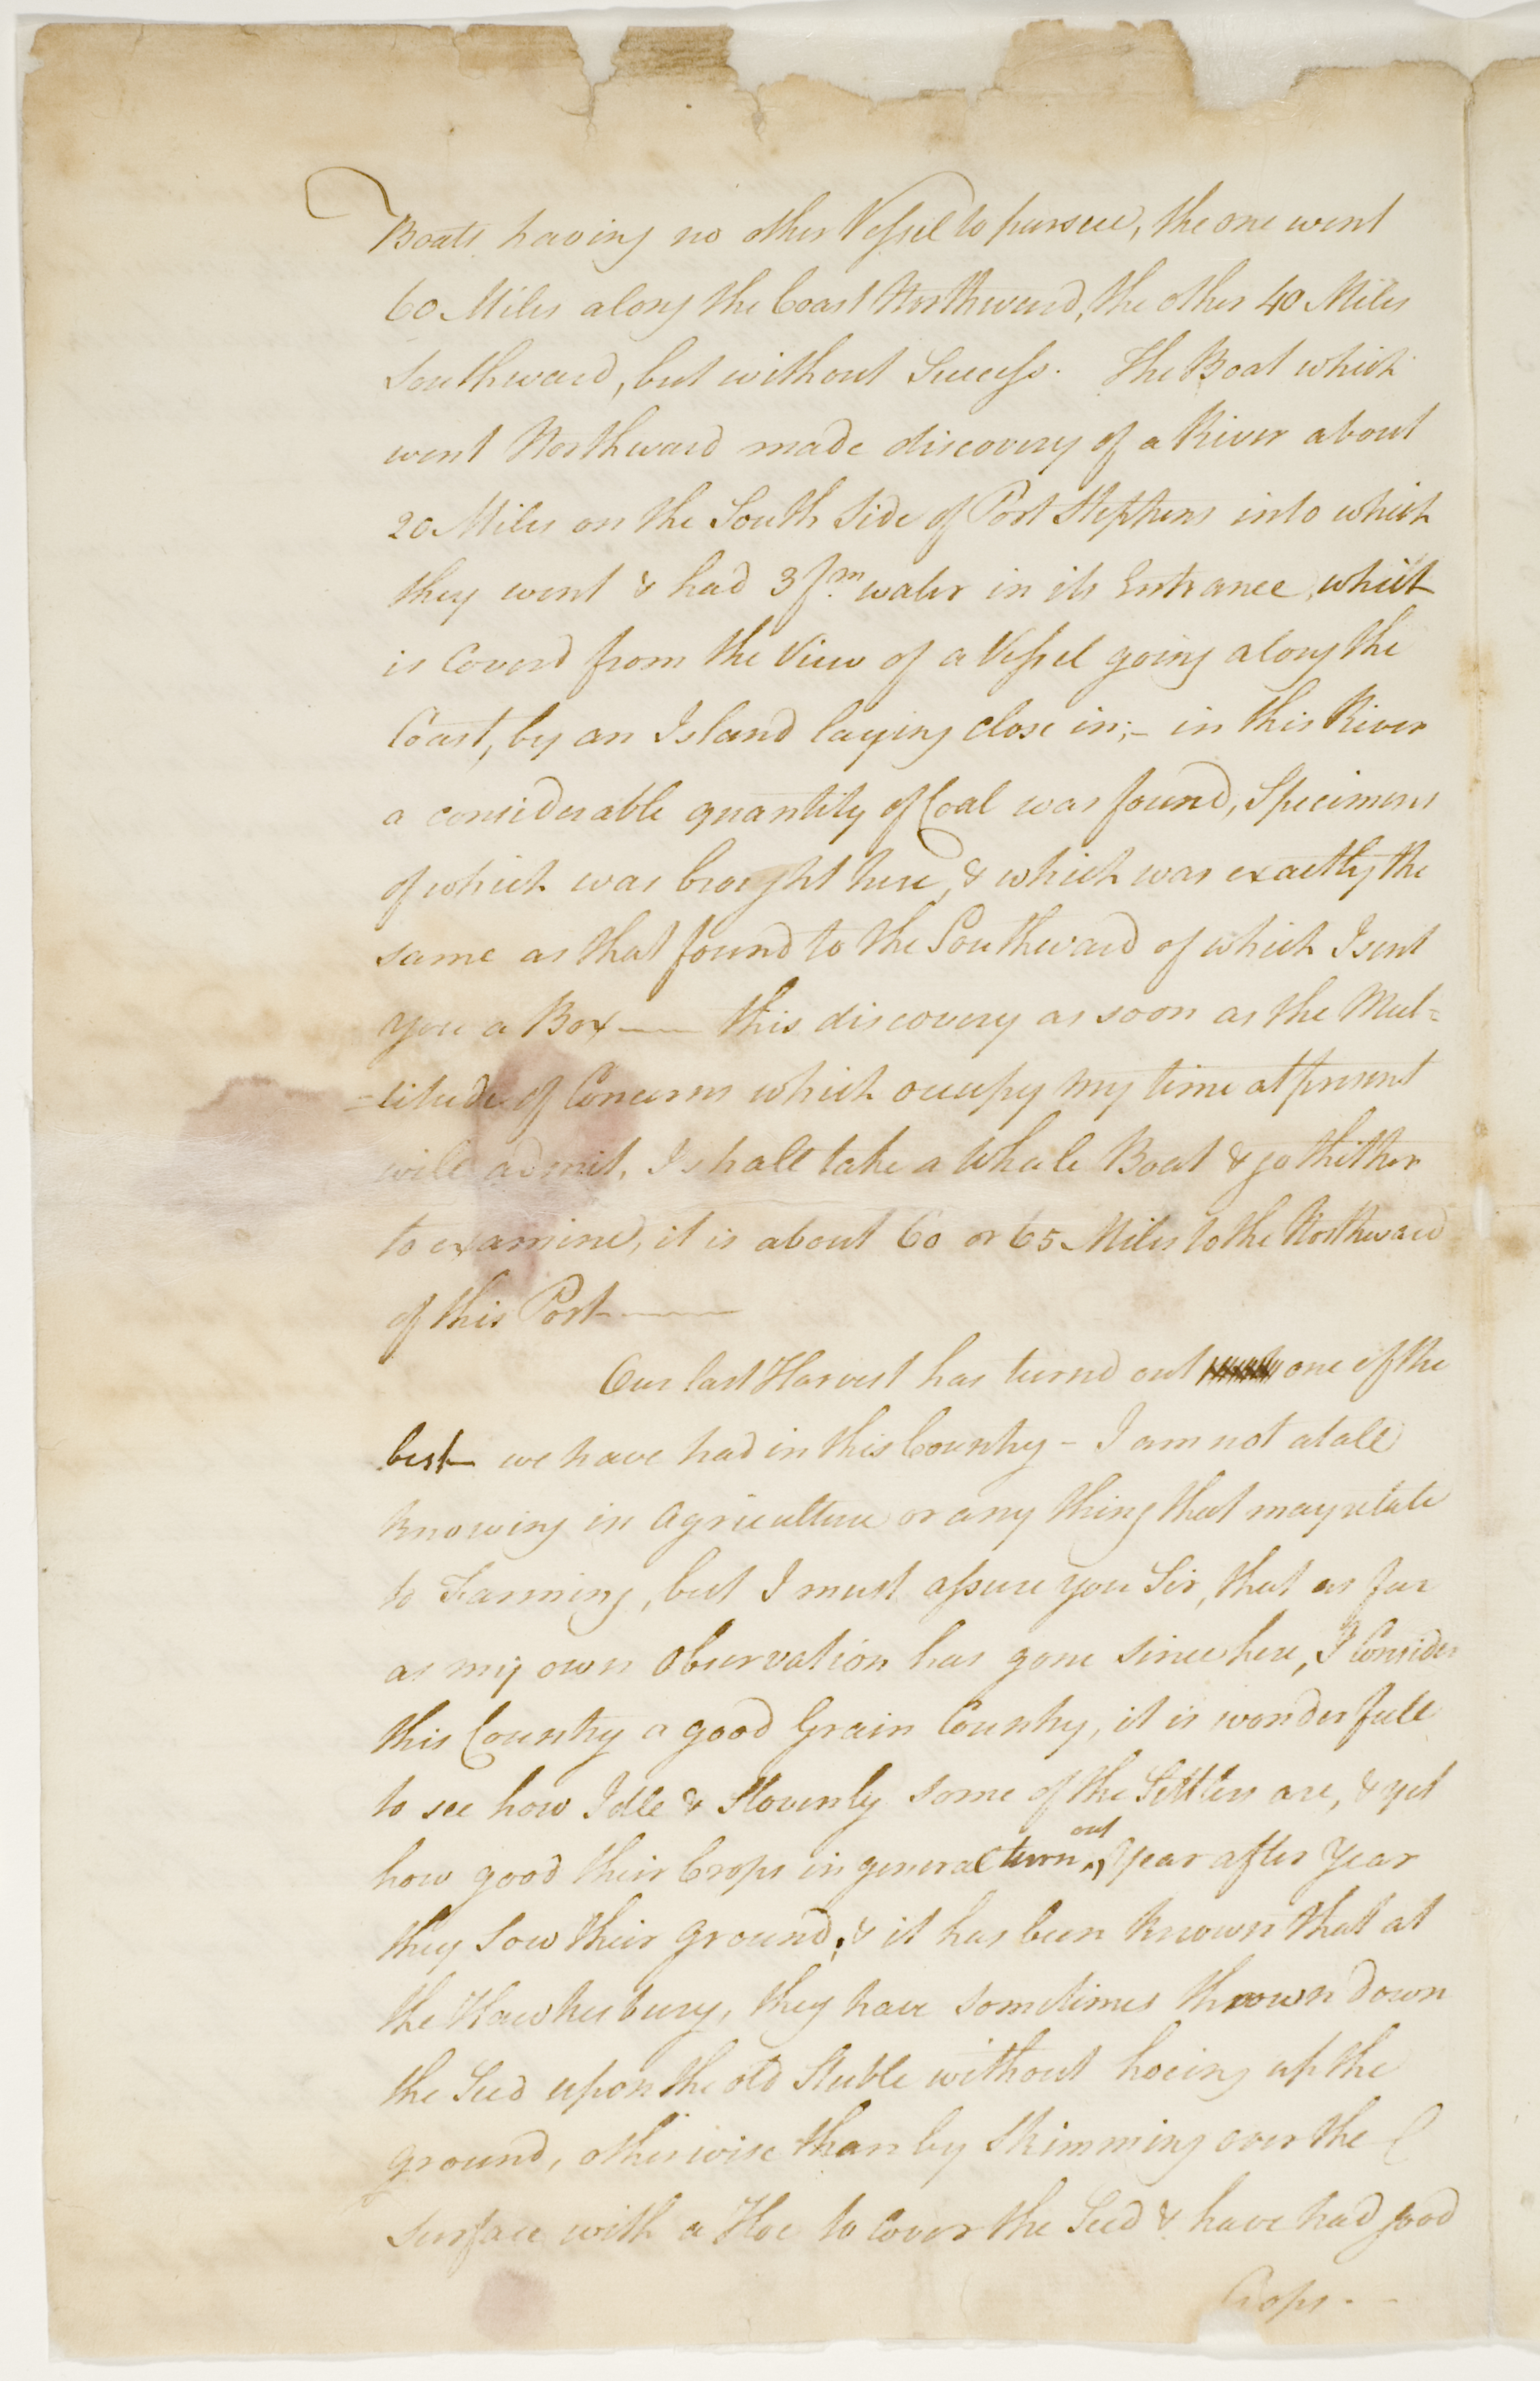 Boats having no other Vessel to pursue, the one went
60 Miles along the Coast Northward, the other 40 Miles
Southward, but without Success. The Boat which
went Northward made discovery of a River about
20 Miles on the South Side of Port Stephens into which
they went & had 3 fm. water in its Entrance, which
is Coverd from the View of a Vessel going along the
Coast, by an Island laying close in;- in this River
a considerable quantity of Coal was found, Specimens
of which was brought here, & which was exactly the
same as that found to the Southward of which I sent
you a Box —— this discovery as soon as the Mul=
=titude of Concerns which occupy my time at present
will admit, I shall take a Whale Boat & go thither
to examine, it is about 60 or 65 Miles to the Northward
of this Port ——
Our last Harvest has turnd out one of the
best we have had in this Country - I am not at all
knowing in Agriculture or any thing that may relate
to Farming, but I must assure you Sir, that as far
as my own Observation has gone since here, I Consider
this Country a good Grain Country, it is wonderfull
to see how Idle & Slovenly some of the Settlers are, & yet
how good their Crops in general turn out, Year after Year
they Sow their ground, & it has been known that at
the Hawkesbury, they have sometimes thrown down
the Seed upon the old Stuble without hoeing up the
ground, otherwise than by Skimming over the
surface with a Hoe to Cover the Seed & have had good
Crops.-